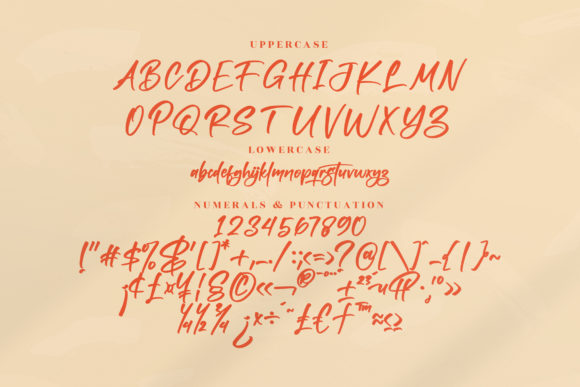 UPPERCASE
ABCDEFGHIJKLMN
OPQRSTUVWXYZ
LOWERCASE
abcdefghijklmnopqrstuvwxyz
NUMERALS & PUNCTUATION
1234567890
!"#$%&'[]*+,-./:;<=>?@[\]^_{|}~
¡¢£¤¥¦§©«¬®¯°±²³´µ¶·¸¹º»
¼½¾¿×÷˜£€ƒ™≈≤≥